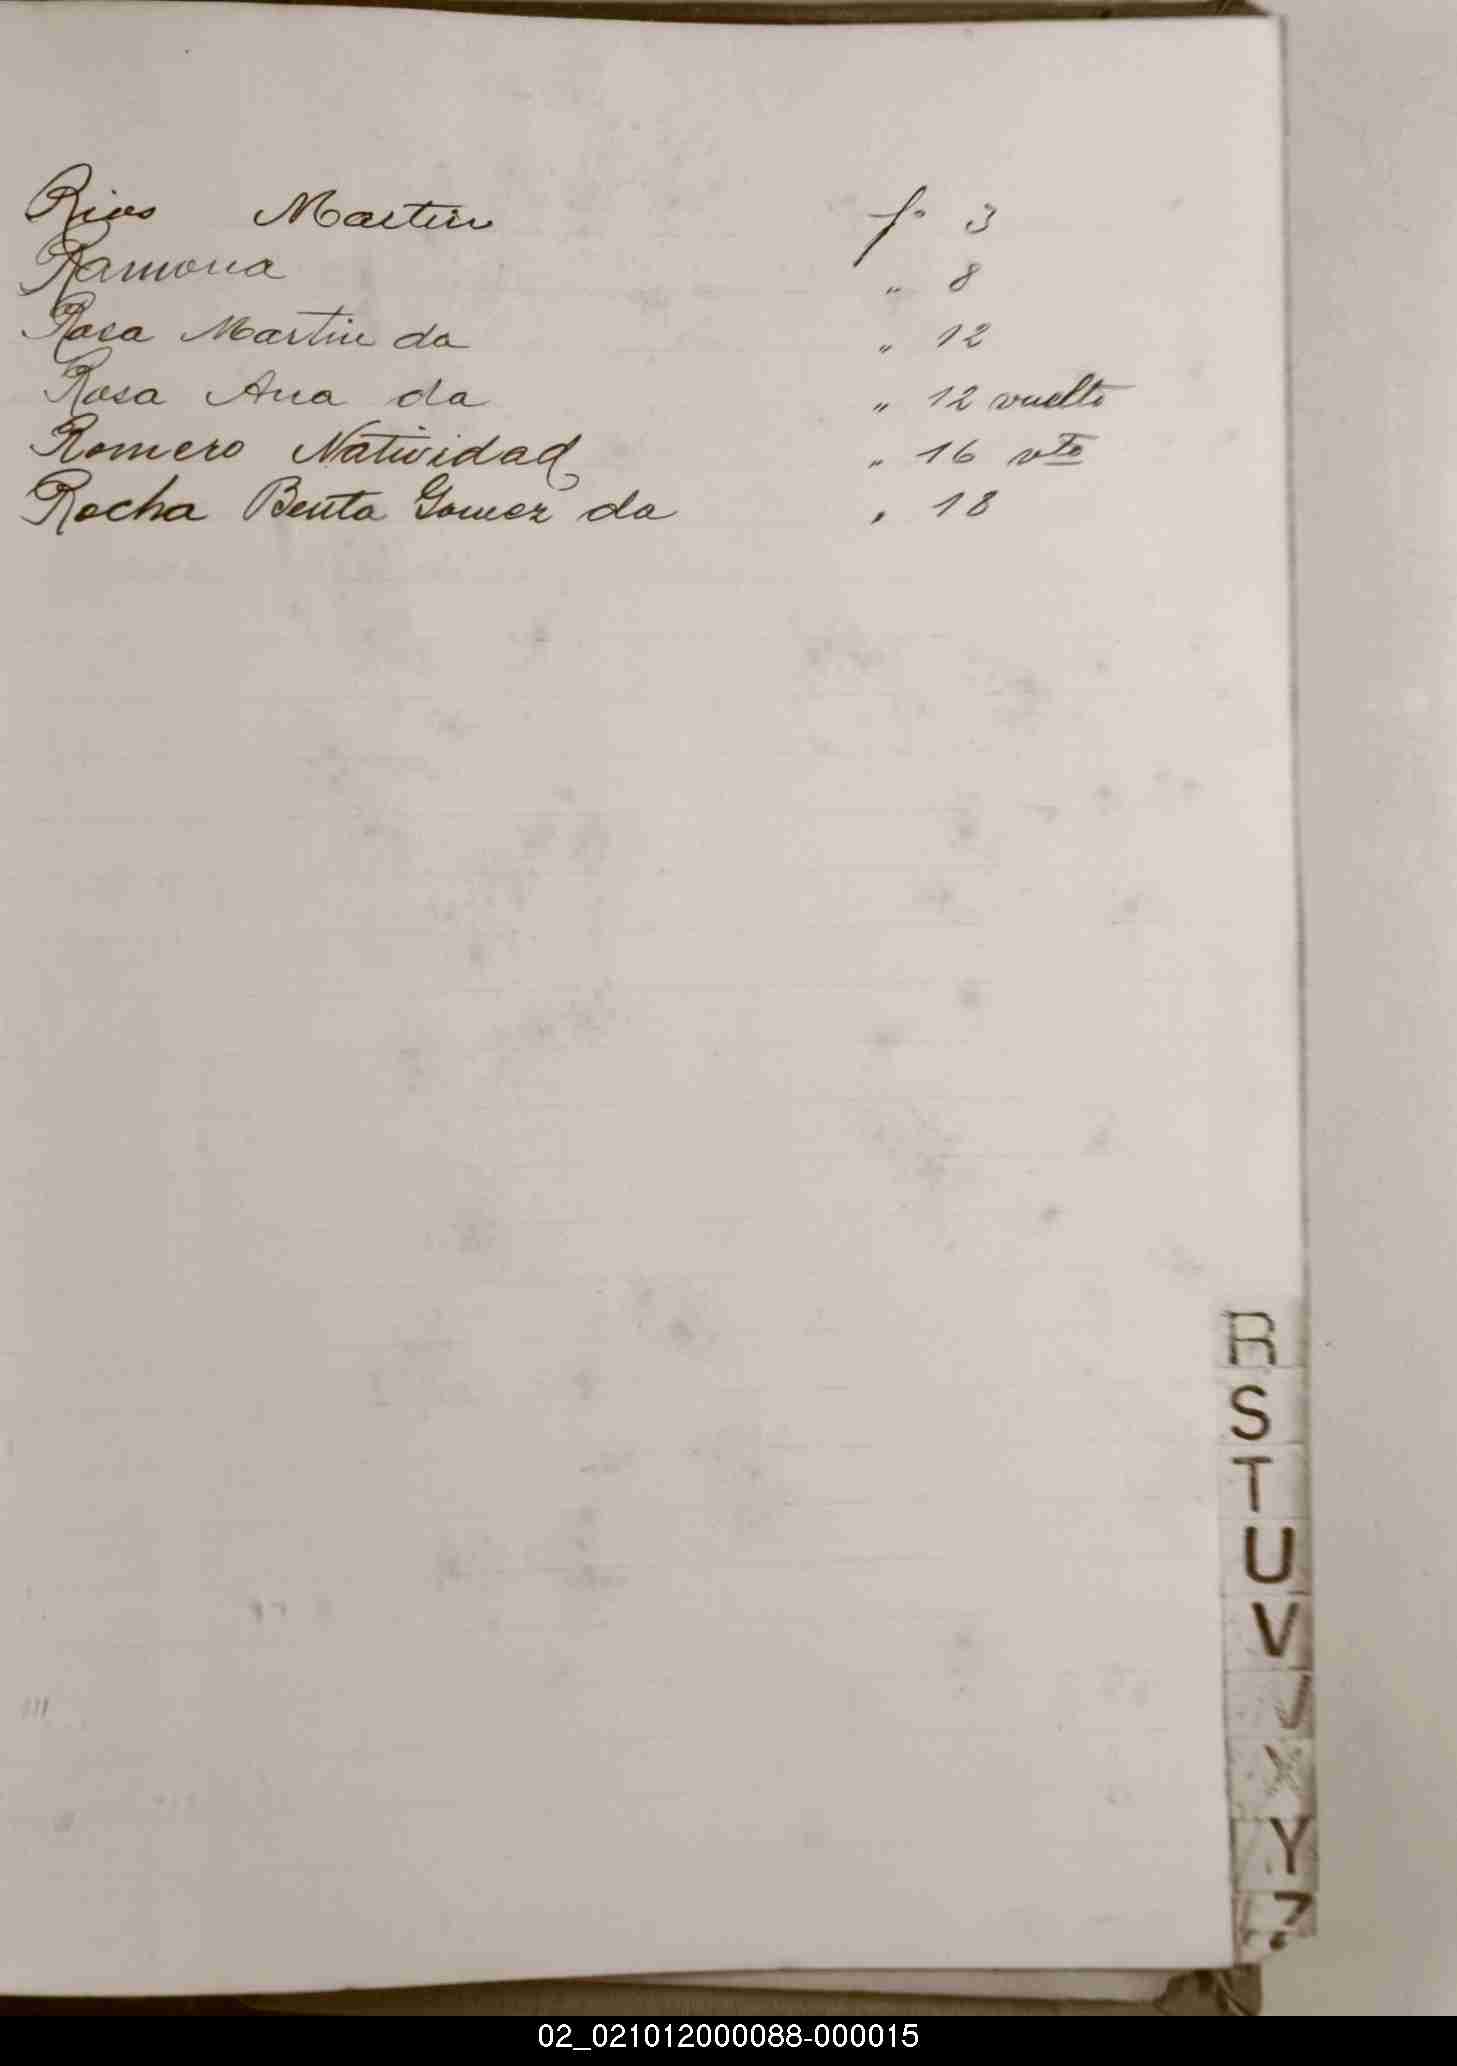 Rios Martin fo 3
Ramona " 8
Rosa Martin da " 12
Rosa Ana da " 12 vuelto
Romero Natividad " 16 vto
Rocha Benta Gomez da " 18
R
S
T
U
V
Y
Z
02_021012000088-000015